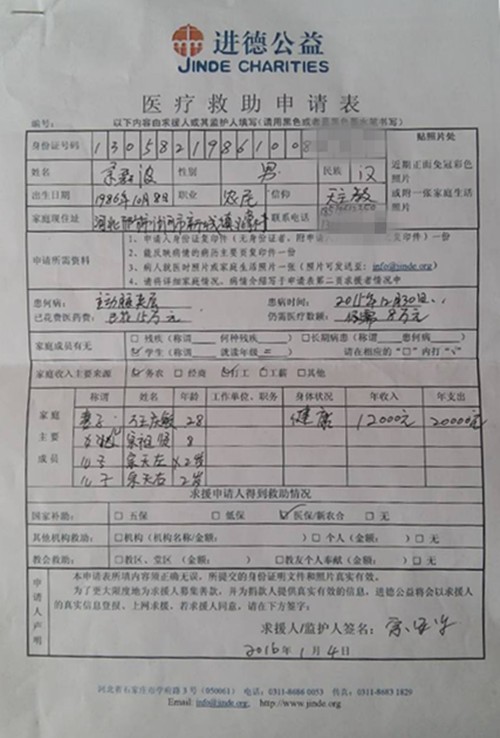 进德公益
JINDE CHARITIES
医疗救助申请表
编号： 以下内容由求援人或其监护人填写（请用黑色或者 书写）
身份证号码 1 3 0 5 8 2 1 9 8 6 1 0 0 8 贴照片处
姓名 性别 男 民族 汉 近期正面免冠彩色照片
出生日期 1986年10月8日 职业 农民 信仰 天主教 或附一张家庭生活照片
家庭现住址 河北 沙河市新城镇 联系电话
申请所需资料
1、申请人身份证复印件（无身份证者，附申请 复印件）一份
2、能反映病情的病历主要页复印件一份
3、病人就医时照片或家庭生活照片一张（照片可发送至：info@jinde.org）
4、请将详细家庭情况、病情介绍写于申请表第二页求援者情况中
患何病： 主动脉夹层 患病时间： 2015年12月30日
已花费医药费： 已花15万元 仍需医疗数额： 仍需8万元
家庭成员有无 □残疾（称谓 何种残疾 ）□长期病患（称谓 患何病 ）
☑学生（称谓 就读年级 二 ） 请在相应的“□”内打“√”
家庭收入主要来源 ☑务农 □经商 ☑打工 □工薪 □其他
家庭主要成员 称谓 姓名 年龄 工作单位、职务 身体状况 年收入 年支出
妻子 庆敏 28 健康 12000元 20000元
宋祖 8
儿子 宋天左 2岁
儿子 宋天右 2岁
求援申请人得到救助情况
国家补助： □五保 □低保 ☑医保/新农合 □无
其他机构救助： □机构（机构名称/金额： ）□个人（金额： ）□无
教会救助： □教区、堂区（金额： ） □教友个人奉献（金额： ）□无
申请人声明
本申请表所填内容须正确无误，所提交的身份证明文件和照片真实有效。
为了更大限度地为求援人募集善款，并为捐款人提供真实有效的信息，进德公益将会以求援人
的真实信息登报、上网求援。若求援人同意，请在下方签字：
求援人/监护人签名：
2016年1月4日
河北省石家庄市学府路3号（050061） 电话：0311-8686 0053 传真：0311-8683 1829
Email: info@jinde.org, http://www.jinde.org